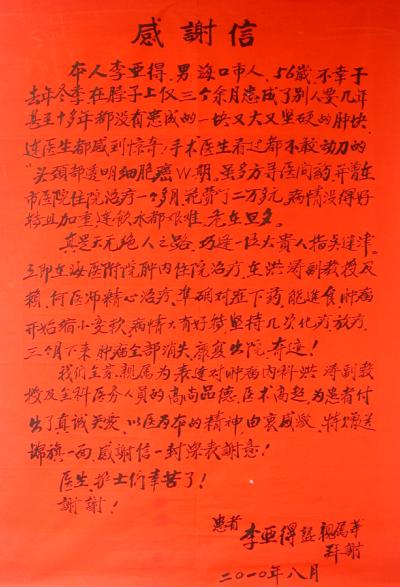 感謝信
本人李亚得,男,海口市人,56歲,不幸于
去年冬季,在脖子上仅三个余月患成了别人要几年
甚至十多年都没有患成的一块又大又坚硬的肿块,
连医生都感到惊奇;手术医生看过都不敢动刀的
"头颈部透明细胞癌Ⅳ期,虽多方寻医问药,并曾在
市医院住院治疗一个多月,花费了二万多元,病情没得好
转且加重,连飲水都艰难,危在旦夕。
真是天无绝人之路,巧逢一位大貴人指点迷津。
立即在海医附院肿内住院治疗,在洪涛副教授及
賴、何医师精心治疗,準确对症下药,能進食,肿瘤
开始缩小变软,病情大有好转,坚持几次化疗放疗,
三个月下来,肿瘤全部消失,康复出院,奇迹!
我们全家亲属为表達对肿瘤内科洪涛副教
授及全科医务人员的高尚品德,医术高超,为患者付
出了真诚关爱,以医为本的精神由衷感激,特敬送
锦旗一面,感谢信一封深表謝意!
医生、护士们辛苦了!
謝謝!
患者
李亚得
親属等
拜謝
二〇一〇年八月